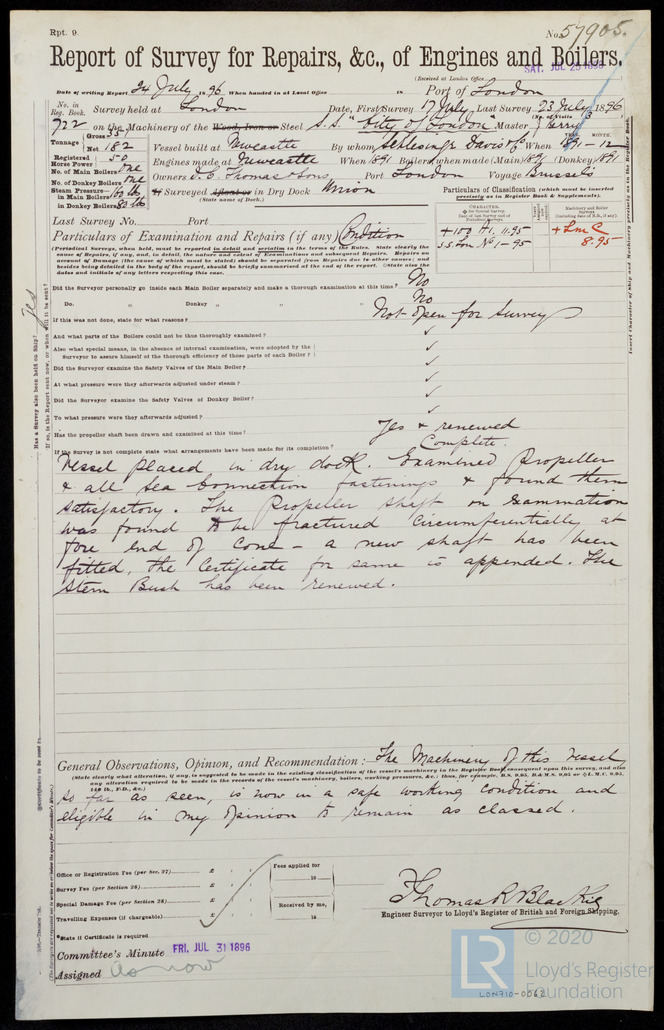 Rpt. 9.
No. 57905.
Report of Survey for Repairs, &c., of Engines and Boilers.
(Received at London Office
SAT. JUL 25 1896
Date of writing Report 24 July 1896 When handed in at Local Office 18 Port of London
No. in Reg. Book. Survey held at London Date, First Survey 17 July Last Survey 23 July 1896
(No. of Visits 3
722 on the Machinery of the Wood, Iron or Steel S.S. "City of London" Master Berry
Tonnage Gross Net 182 Vessel built at Newcastle By whom Schlesinger Davis & Co When 1891-12
YEAR. MONTH.
Registered Horse Power 50 Engines made at Newcastle When 1891 Boilers, when made (Main) 1891 (Donkey) 1891
No. of Main Boilers One
No. of Donkey Boilers One Owners Thomas & Sons Port London Voyage Brussels
Steam Pressure in Main Boilers 160 lb
in Donkey Boilers 80 lb If Surveyed Afloat or in Dry Dock Union
(State name of Dock.)
Particulars of Classification (which must be inserted precisely as in Register Book & Supplements).
CHARACTER.
Machinery and Boiler Surveys
+100 A1. 11.95
S.S. Lon No 1-95
+LMC
8.95
Last Survey No. Port
Particulars of Examination and Repairs (if any) Condition
(Periodical Surveys, when held, must be reported in detail and seriatim in the terms of the Rules. State clearly the
cause of Repairs, if any, and, in detail, the nature and extent of Examinations and subsequent Repairs. Repairs on
account of Damage (the cause of which must be stated) should be separated from Repairs due to other causes; and
besides being detailed in the body of the report, should be briefly summarised at the end of the report. State also the
dates and initials of any letters respecting this case.
Did the Surveyor personally go inside each Main Boiler separately and make a thorough examination at this time? No
Do. " Donkey " " " No
If this was not done, state for what reasons? Not open for Survey
And what parts of the Boilers could not be thoroughly examined?
Also what special means, in the absence of internal examination, were adopted by the
Surveyor to assure himself of the thorough efficiency of those parts of each Boiler?
Did the Surveyor examine the Safety Valves of the Main Boiler?
At what pressure were they afterwards adjusted under steam?
Did the Surveyor examine the Safety Valves of Donkey Boiler?
To what pressure were they afterwards adjusted?
Has the propeller shaft been drawn and examined at this time? Yes & renewed
If the Survey is not complete state what arrangements have been made for its completion? Complete.
Vessel placed in dry dock. Examined propeller
& all sea connection fastenings & found them
satisfactory. The propeller shaft on examination
was found to be fractured circumferentially at
fore end of cone - a new shaft has been
fitted, the certificate for same is appended. The
Stern Bush has been renewed.
General Observations, Opinion, and Recommendation: The Machinery of this vessel
(State clearly what alteration, if any, is suggested to be made in the existing classification of the vessel's machinery in the Register Book consequent upon this survey, and also
any alteration required to be made in the records of the vessel's machinery, boilers, working pressures, &c.; thus, for example, B.S. 9,95, B.&M.S. 9,95 or L.M.C. 9,95,
140 lb., F.D., &c.)
so far as seen, is now in a safe working condition and
eligible in my opinion to remain as classed.
Office or Registration Fee (per Sec. 27) £
Survey Fee (per Section 28) £
Special Damage Fee (per Section 28) £
Travelling Expenses (if chargeable) £
Fees applied for
18
Received by me,
18
Thomas R Blackie
Engineer Surveyor to Lloyd's Register of British and Foreign Shipping.
*State if Certificate is required
Committee's Minute FRI. JUL 31 1896
Assigned as now
Has a Survey also been held on Ship? Yes
LR
© 2020
Lloyd's Register
Foundation
LON710-0062